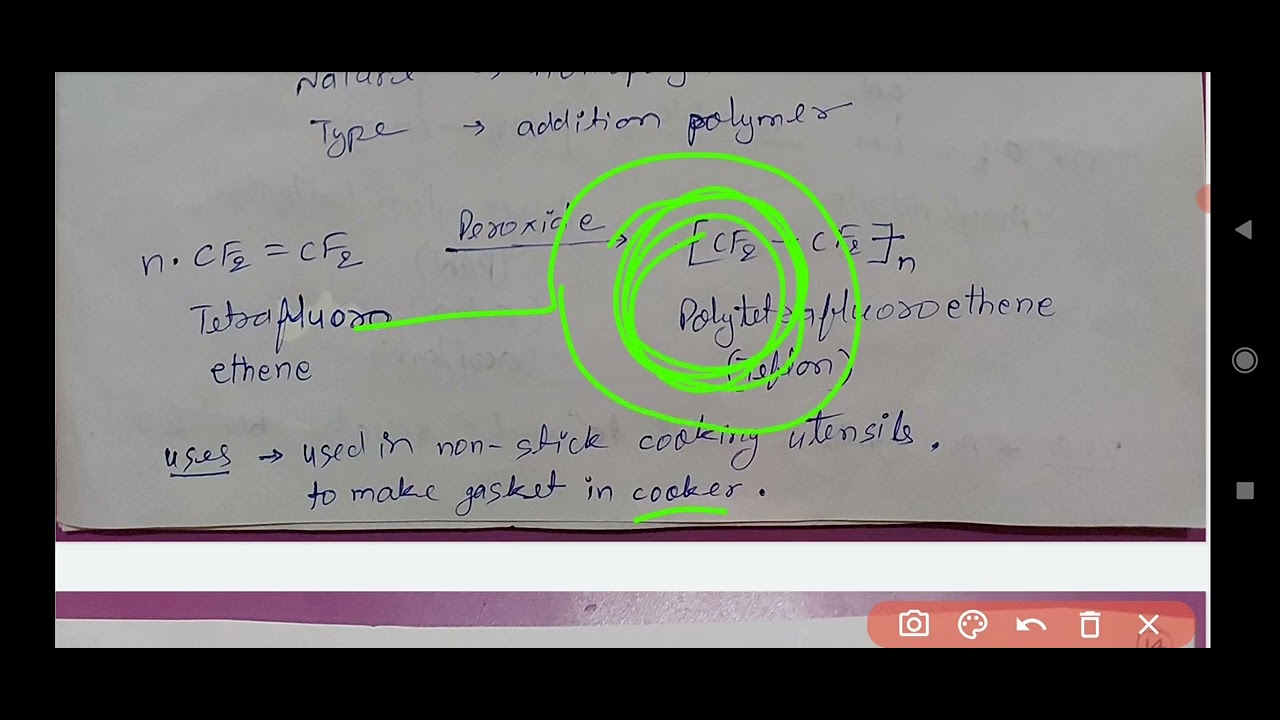 Type → addition polymer
n. CF2 = CF2 Peroxide → [CF2 - CF2]n
Tetrafluoro Polytetrafluoroethene
ethene (Teflon)
uses → used in non-stick cooking utensils.
to make gasket in cooker.